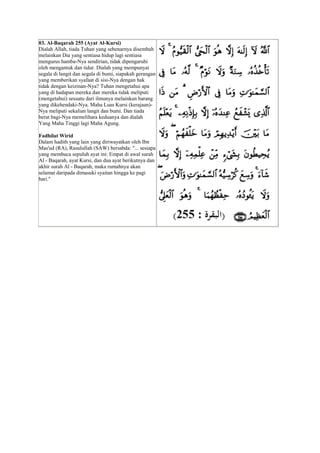 03. Al-Baqarah 255 (Ayat Al-Kursi)
Dialah Allah, tiada Tuhan yang sebenarnya disembah
melainkan Dia yang sentiasa hidup lagi sentiasa
mengurus hamba-Nya sendirian, tidak dipengaruhi
oleh mengantuk dan tidur. Dialah yang mempunyai
segala di langit dan segala di bumi, siapakah gerangan
yang memberikan syafaat di sisi-Nya dengan hak
tidak dengan keizinan-Nya? Tuhan mengetahui apa
yang di hadapan mereka dan mereka tidak meliputi
(mengetahui) sesuatu dari ilmunya melainkan barang
yang dikehendaki-Nya. Maha Luas Kursi (kerajaan)-
Nya meliputi sekalian langit dan bumi. Dan tiada
berat bagi-Nya memelihara keduanya dan dialah
Yang Maha Tinggi lagi Maha Agung.
Fadhilat Wirid
Dalam hadith yang lain yang diriwayatkan oleh Ibn
Mas'ud (RA), Rasulullah (SAW) bersabda: "... sesiapa
yang membaca sepuluh ayat ini: Empat di awal surah
Al - Baqarah, ayat Kursi, dan dua ayat berikutnya dan
akhir surah Al - Baqarah, maka rumahnya akan
selamat daripada dimasuki syaitan hingga ke pagi
hari."
ٱللَّهُ لَآ إِلَٰهَ إِلَّا هُوَ ٱلْحَىُّ ٱلْقَيُّومُ ۚ لَا
تَأْخُذُهُۥ سِنَةٌ وَلَا نَوْمٌ ۚ لَّهُۥ مَا فِى
ٱلسَّمَٰوَٰتِ وَمَا فِى ٱلْأَرْضِ ۗ مَن ذَا
ٱلَّذِى يَشْفَعُ عِندَهُۥٓ إِلَّا بِإِذْنِهِۦ ۚ يَعْلَمُ
مَا بَيْنَ أَيْدِيهِمْ وَمَا خَلْفَهُمْ ۖ وَلَا
يُحِيطُونَ بِشَىْءٍ مِّنْ عِلْمِهِۦٓ إِلَّا بِمَا
شَآءَ ۚ وَسِعَ كُرْسِيُّهُ ٱلسَّمَٰوَٰتِ وَٱلْأَرْضَ ۖ
وَلَا يَـُٔودُهُۥ حِفْظُهُمَا ۚ وَهُوَ ٱلْعَلِىُّ
ٱلْعَظِيمُ ﴿٢٥٥﴾ (البقرة : 255)